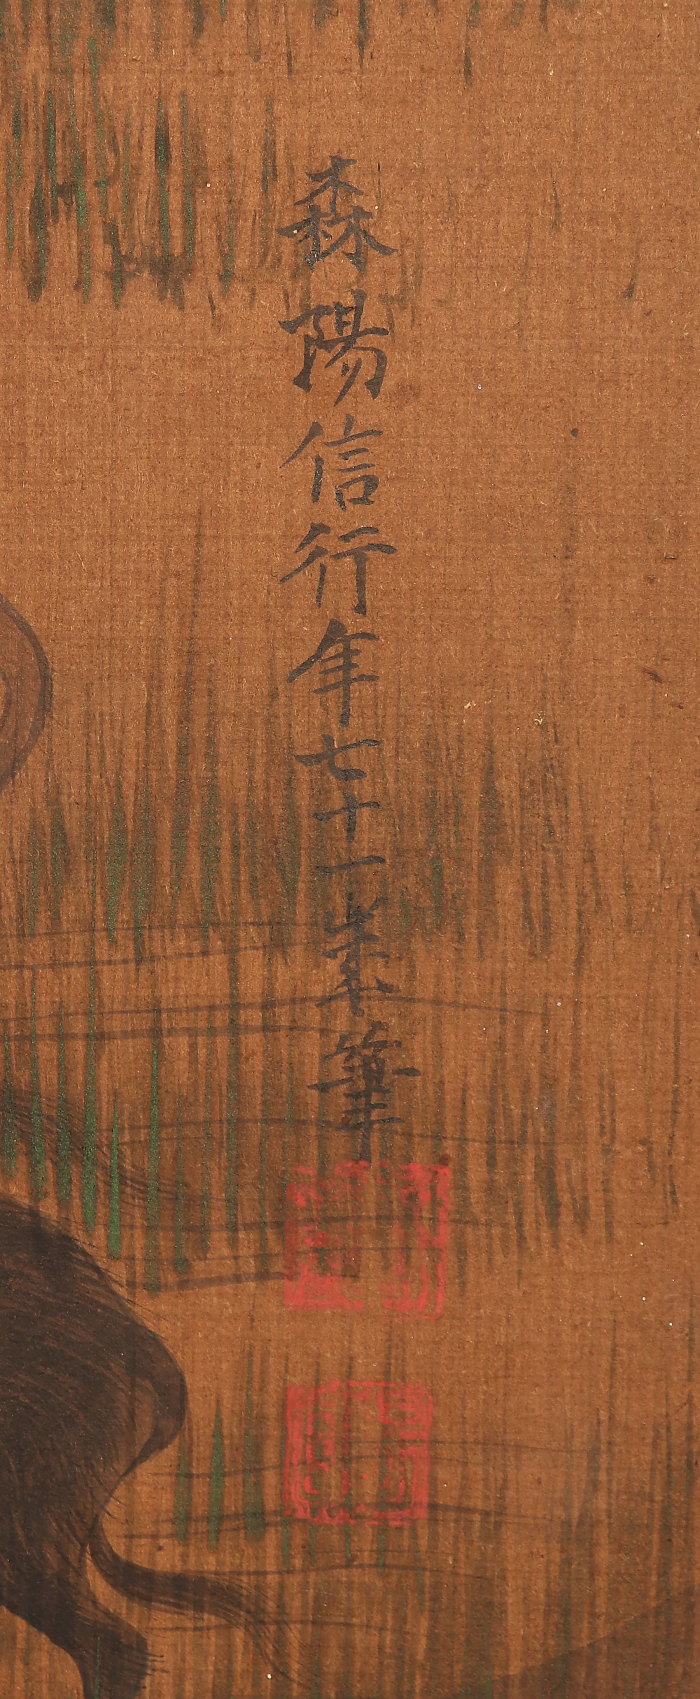 森陽信行年七十一歳筆